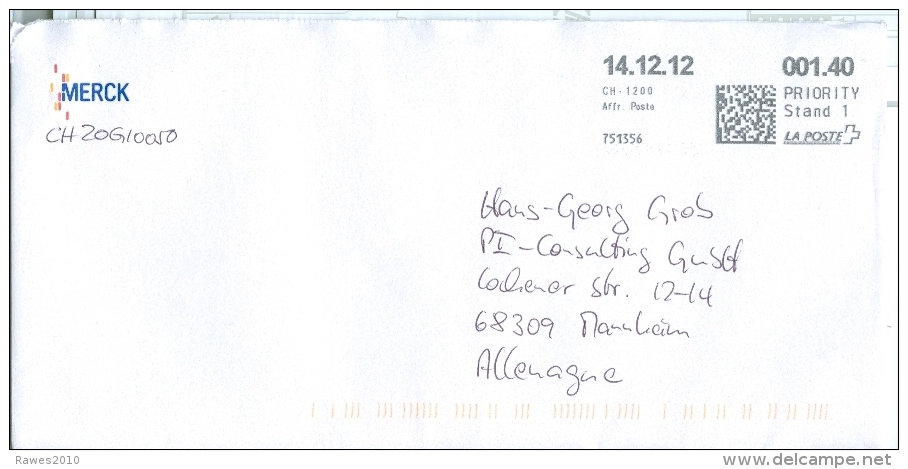 MERCK
CH20G10050
14.12.12
001.40
CH-1200
Affr. Poste
751356
PRIORITY
Stand 1
LA POSTE
Hans-Georg Grob
PI-Consulting GmbH
Cochemer Str. 12-14
68309 Mannheim
Allemagne
Rawes2010
www.delcampe.net